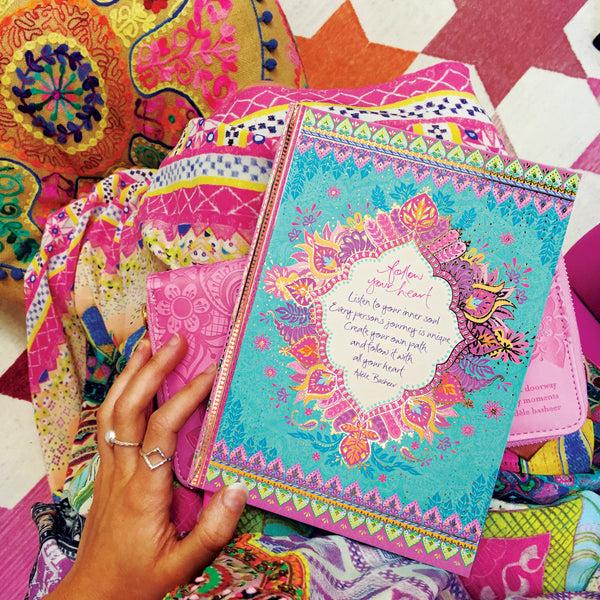 follow
your heart
Listen to your inner soul
Every person's journey is unique
Create your own path
and follow it with
all your heart.
Adèle Basheer
doorway
moments
adèle basheer